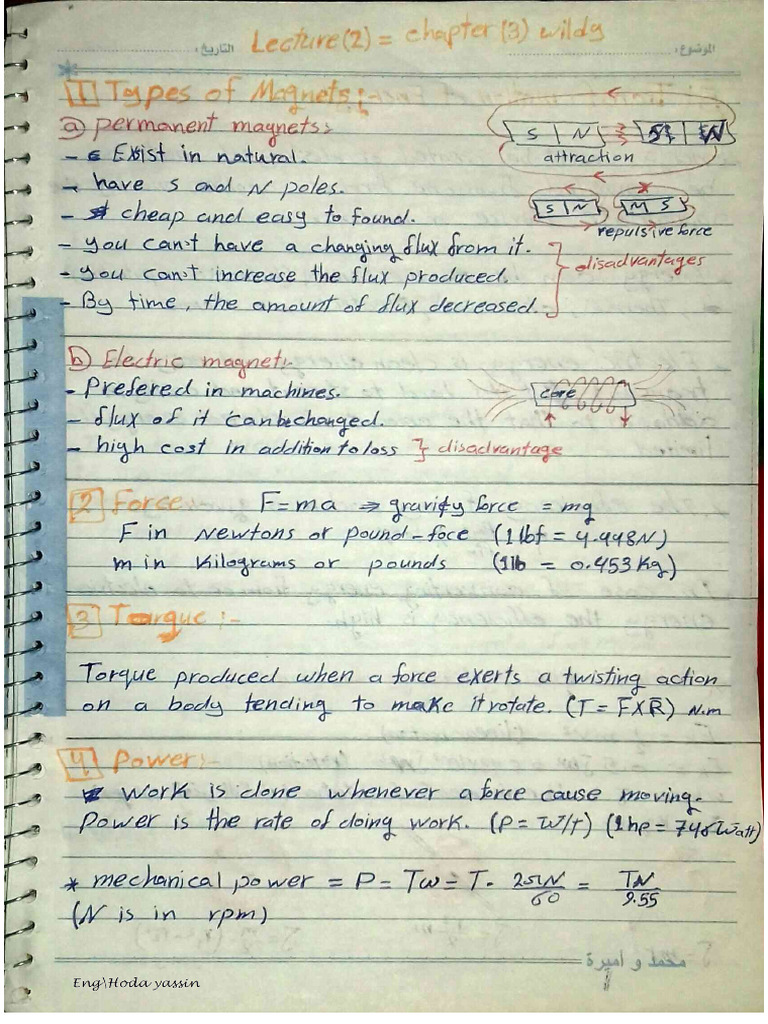 الموضوع:
التاريخ:
Lecture(2) = chapter(3) wildy
1 Types of Magnets:-
a) permanent magnets:
- Exist in natural.
- have s and N poles.
- cheap and easy to found.
- you can't have a changing flux from it.
- you can't increase the flux produced.
- By time, the amount of flux decreased.
disadvantages
S N
S N
attraction
S N
N S
repulsive force
b) Electric magnet:-
- Prefered in machines.
- flux of it can be changed.
- high cost in addition to loss } disadvantage
core
2 Force:- F=ma ⇒ gravity force = mg
F in Newtons or pound-foce (1 lbf = 4.448N)
m in Kilograms or pounds (1lb = 0.453 Kg)
3 Torque:-
Torque produced when a force exerts a twisting action
on a body tending to make it rotate. (T = F̄ X R̄) N.m
4 Power:-
work is done whenever a force cause moving.
Power is the rate of doing work. (P = W/t) (1 hp = 746 Watt)
* mechanical power = P = Tω = T. 2πN/60 = TN/9.55
(N is in rpm)
محمد و اميرة
1
Eng\Hoda yassin